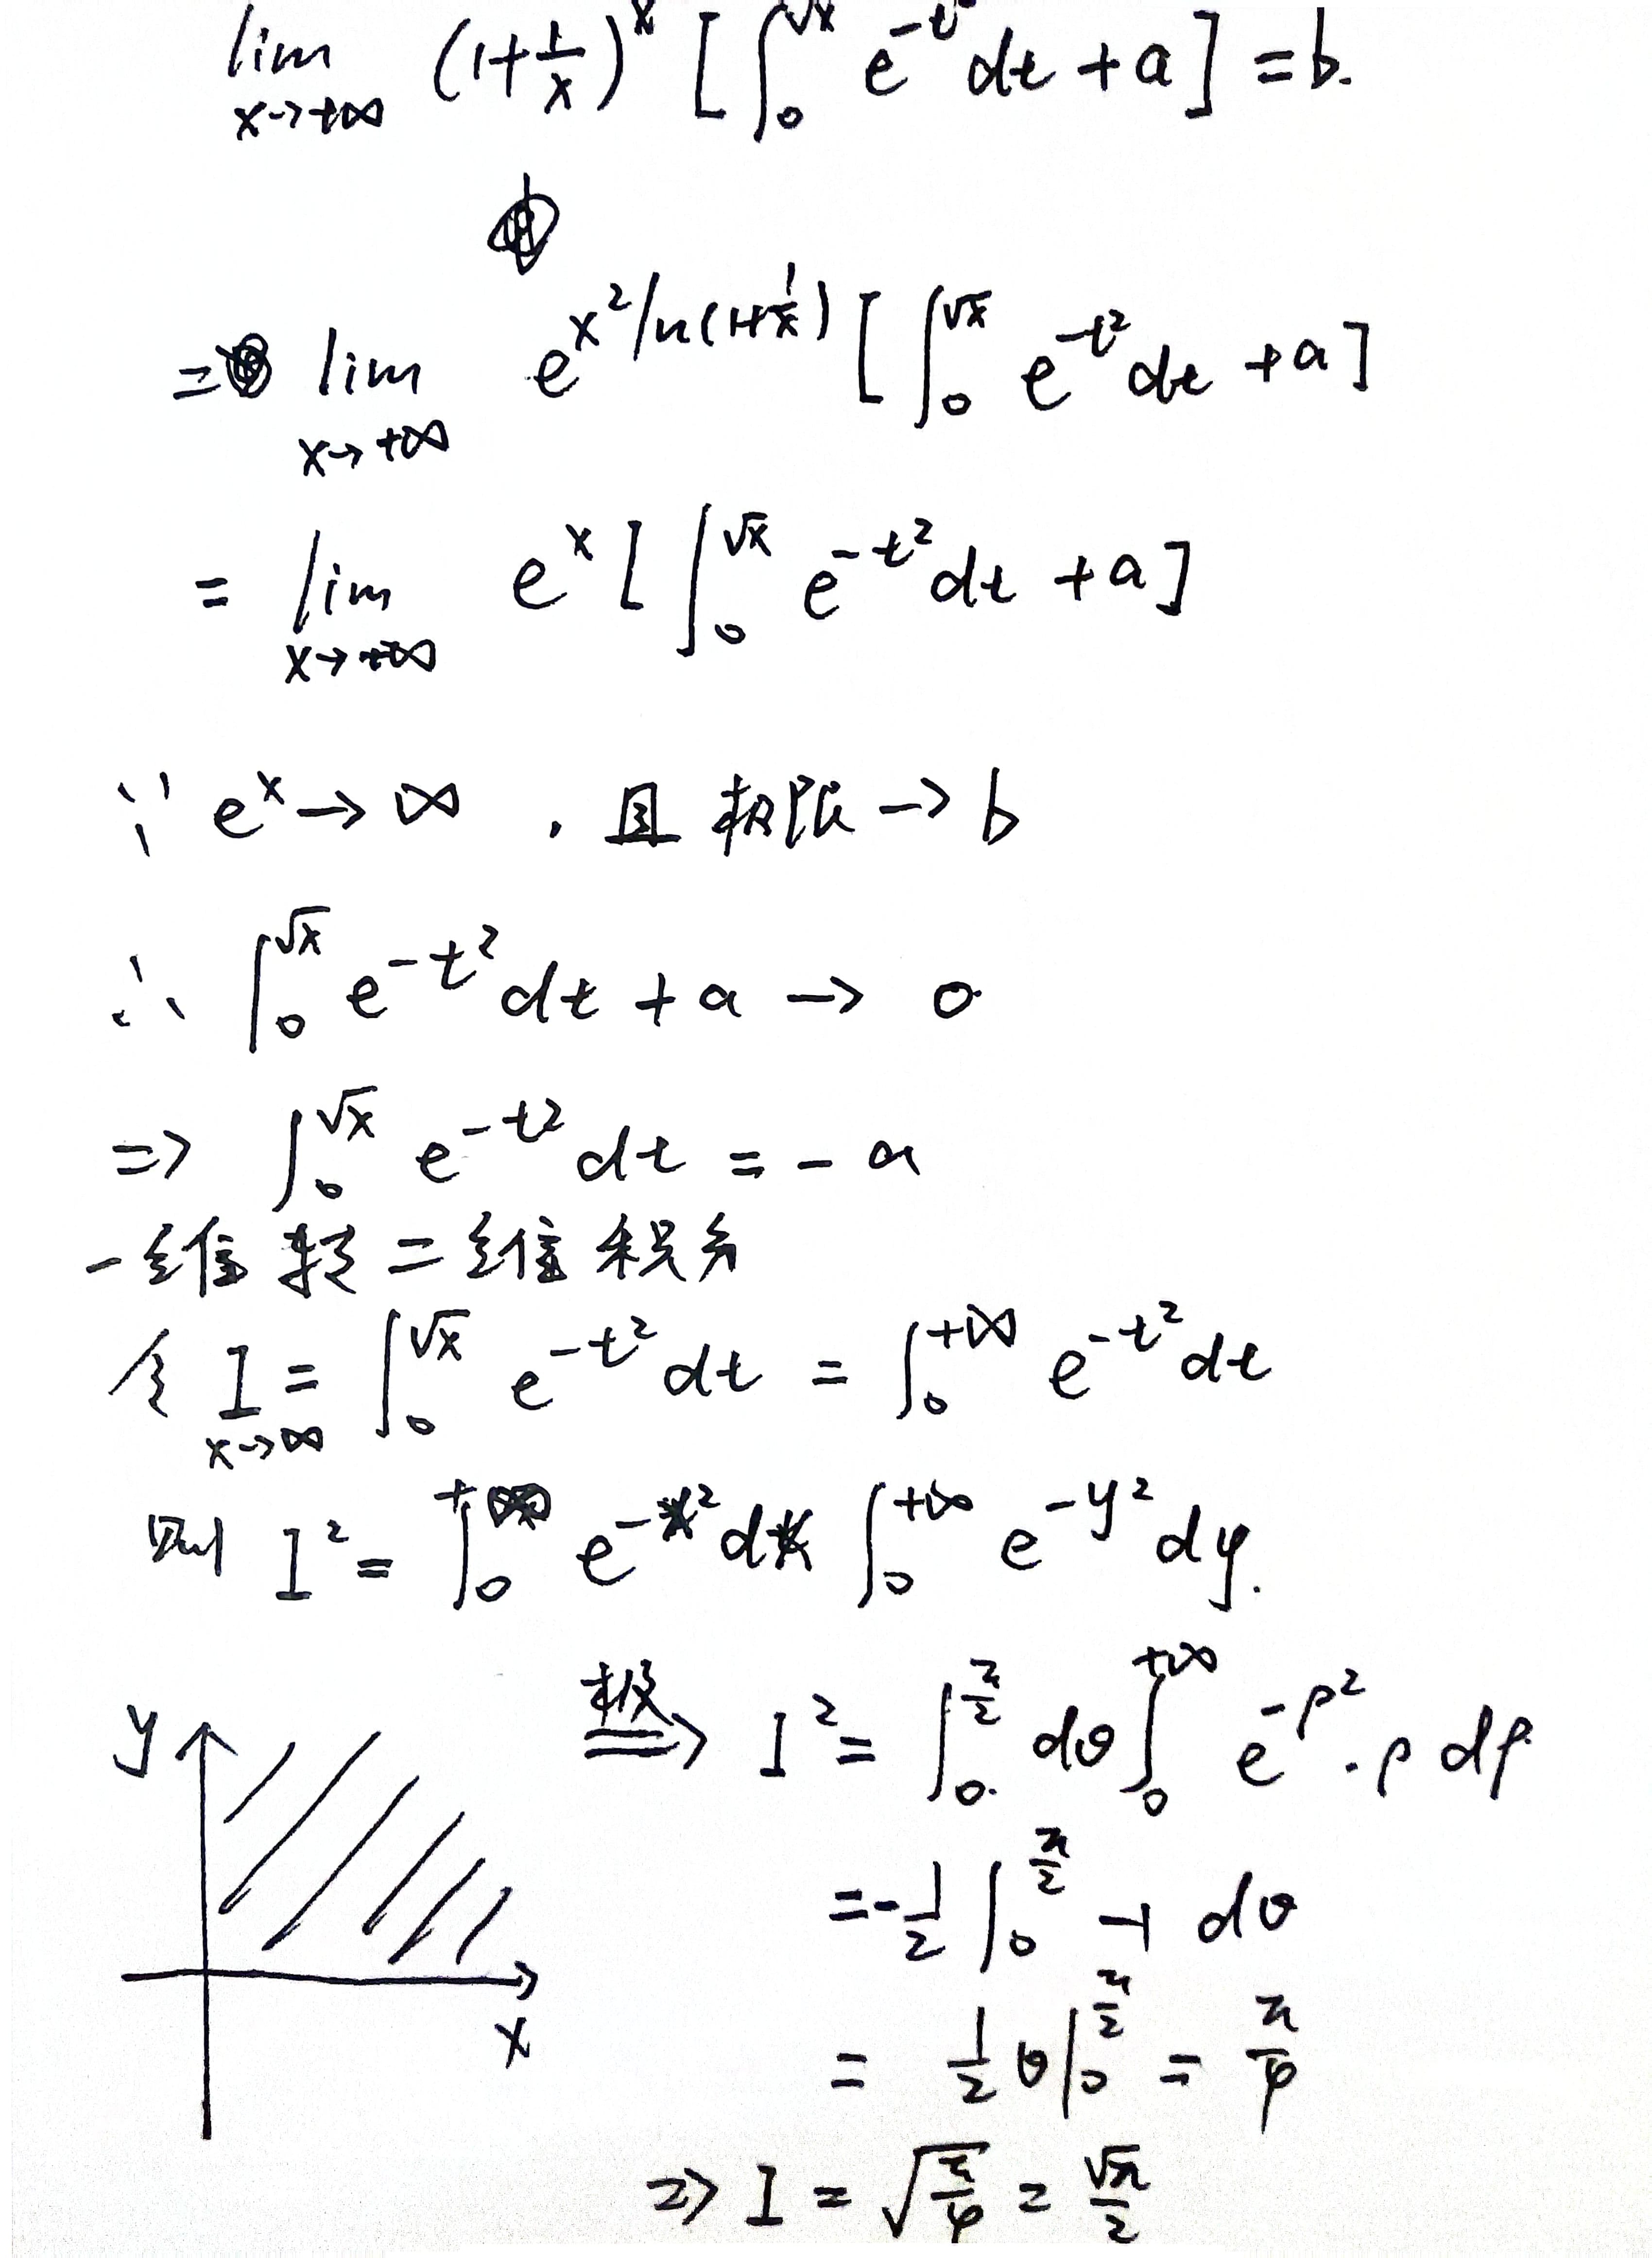 lim x→+∞ (1+1/x)^x [∫₀^√x e^-t dt + a] = b.
= lim x→+∞ e^{x² ln(1+1/x)} [∫₀^√x e^{-t²} dt + a]
= lim x→+∞ e^x [∫₀^√x e^{-t²} dt + a]
∵ e^x → ∞ , 且 极限 → b
∴ ∫₀^√x e^{-t²} dt + a → 0
=> ∫₀^√x e^{-t²} dt = -a
一维 转 二维 积分
令 I = ∫₀^√x e^{-t²} dt = ∫₀^{+∞} e^{-t²} dt
x→∞
则 I² = ∫₀^{+∞} e^{-x²} dx ∫₀^{+∞} e^{-y²} dy.
y
极 => I² = ∫₀^{π/2} dθ ∫₀^{+∞} e^{-ρ²} · ρ dρ
= -1/2 ∫₀^{π/2} -1 dθ
x
= 1/2 θ|₀^{π/2} = π/4
=> I = √(π/4) = √π/2